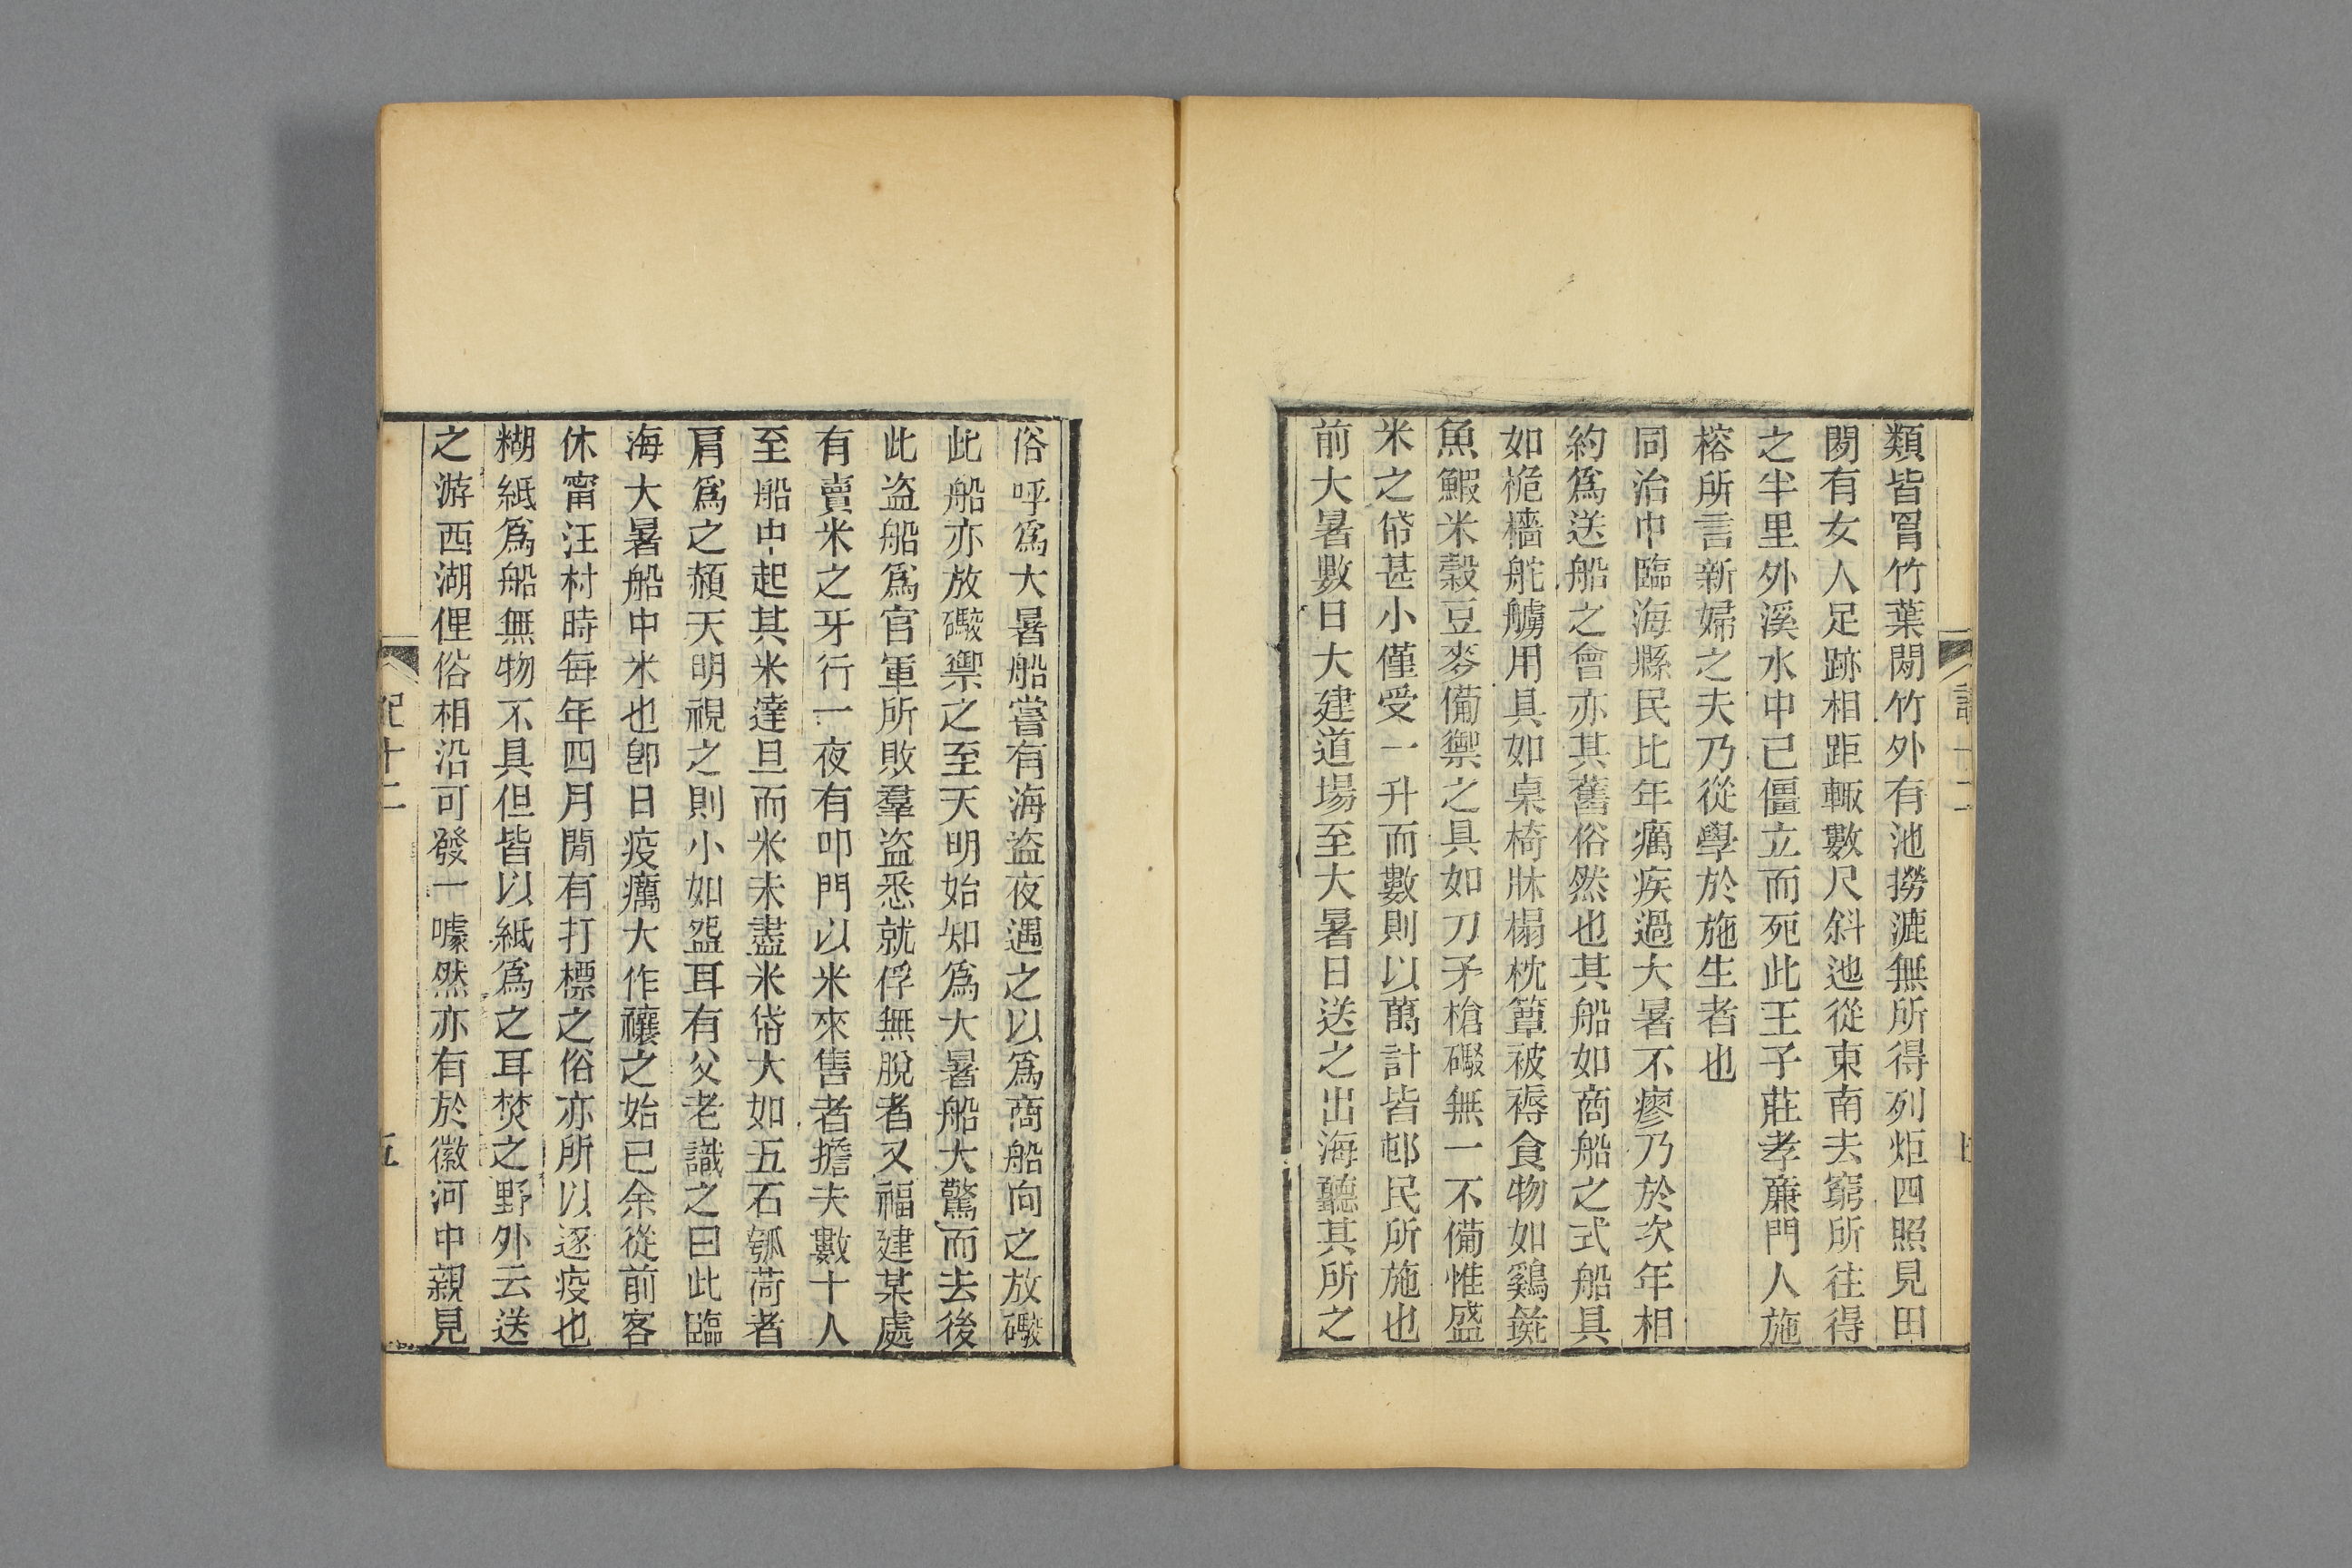 類皆胷竹葉閒竹外有池撈漉無所得列炬四照見田
閒有女人足跡相距輒數尺斜迤從東南去窮所往得
之半里外溪水中已僵立而死此王子莊孝廉門人施
榕所言新婦之夫乃從學於施生者也
同治中臨海縣民比年癘疾過大暑不瘳乃於次年相
約爲送船之會亦其舊俗然也其船如商船之式船具
如桅檣舵艣用具如桌椅牀榻枕簟被褥食物如鷄彘
魚鰕米穀豆麥備禦之具如刀矛槍礟無一不備惟盛
米之帒甚小僅受一升而數則以萬計皆邨民所施也
前大暑數日大建道場至大暑日送之出海聽其所之
俗呼爲大暑船嘗有海盜夜遇之以爲商船向之放礟
此船亦放礟禦之至天明始知爲大暑船大驚而去後
此盜船爲官軍所敗羣盜悉就俘無脫者又福建某處
有賣米之牙行一夜有叩門以米來售者擔夫數十人
至船中起其米達旦而米未盡米帒大如五石瓠荷者
肩爲之赬天明視之則小如盌耳有父老識之曰此臨
海大暑船中米也卽日疫癘大作禳之始已余從前客
休甯汪村時每年四月閒有打標之俗亦所以逐疫也
糊紙爲船無物不具但皆以紙爲之耳焚之野外云送
之游西湖俚俗相沿可發一噱然亦有於徽河中親見
記十二
五